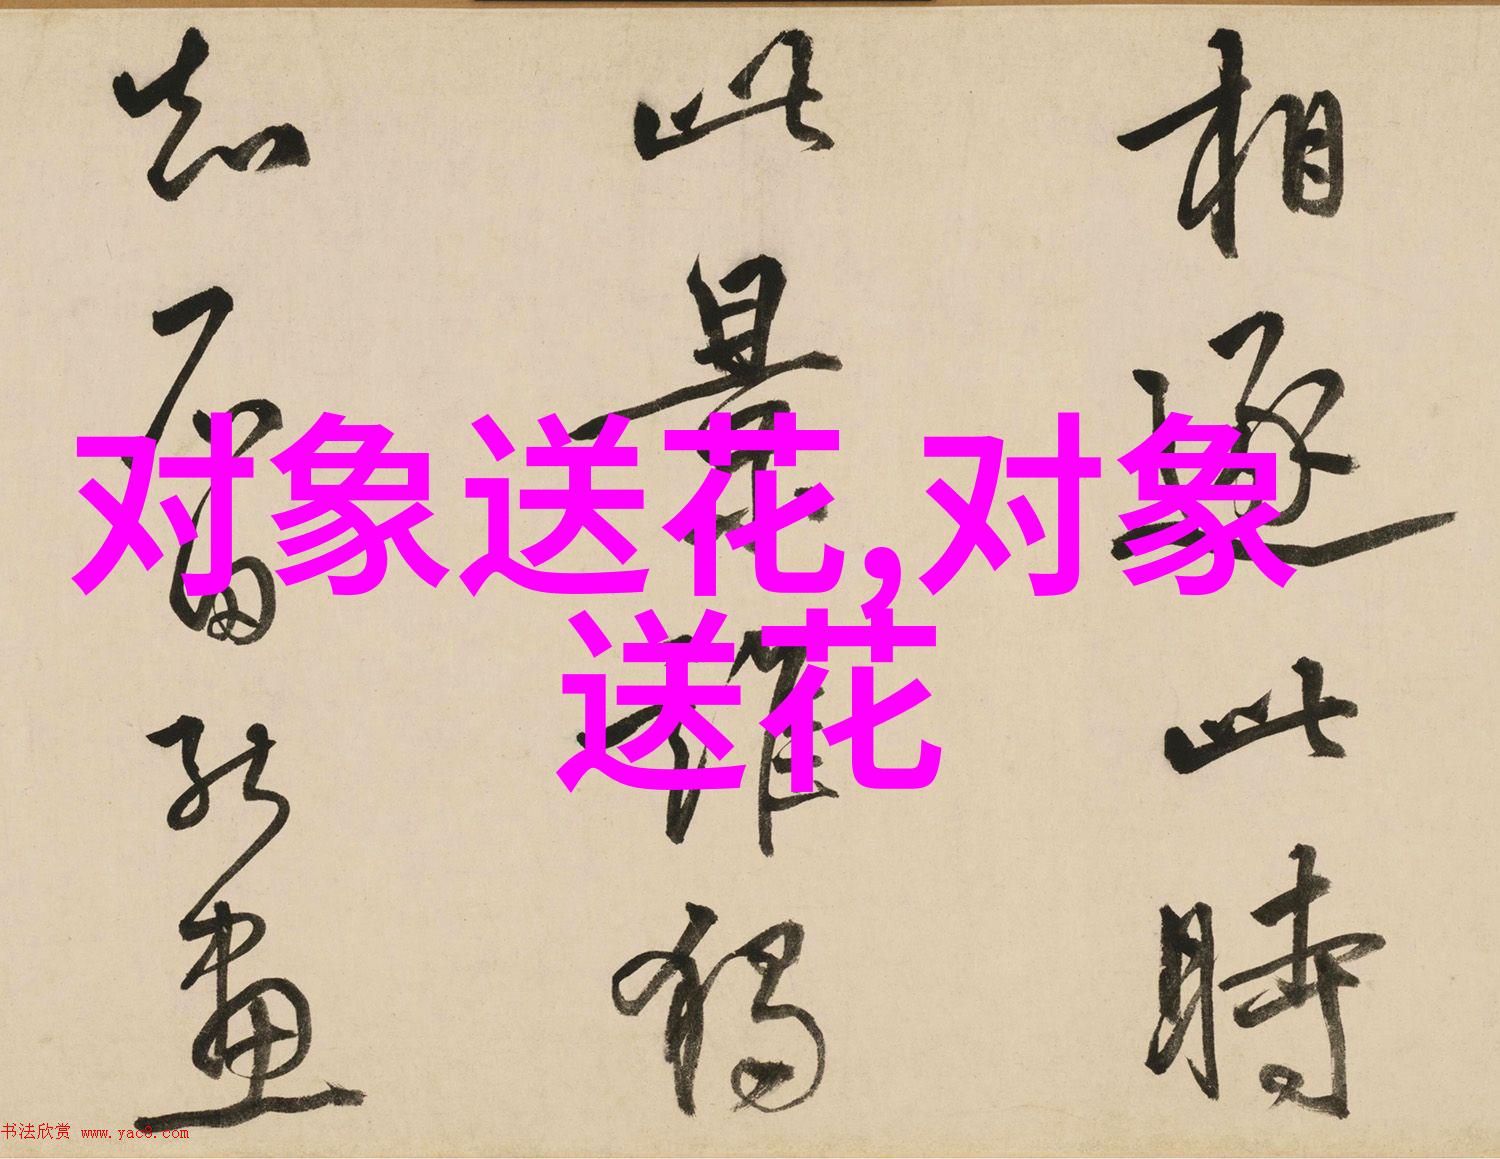 相逐此時
此景誰獨
知唇而能畫
对象送花,对象
送花
书法欣赏 www.yac8.com